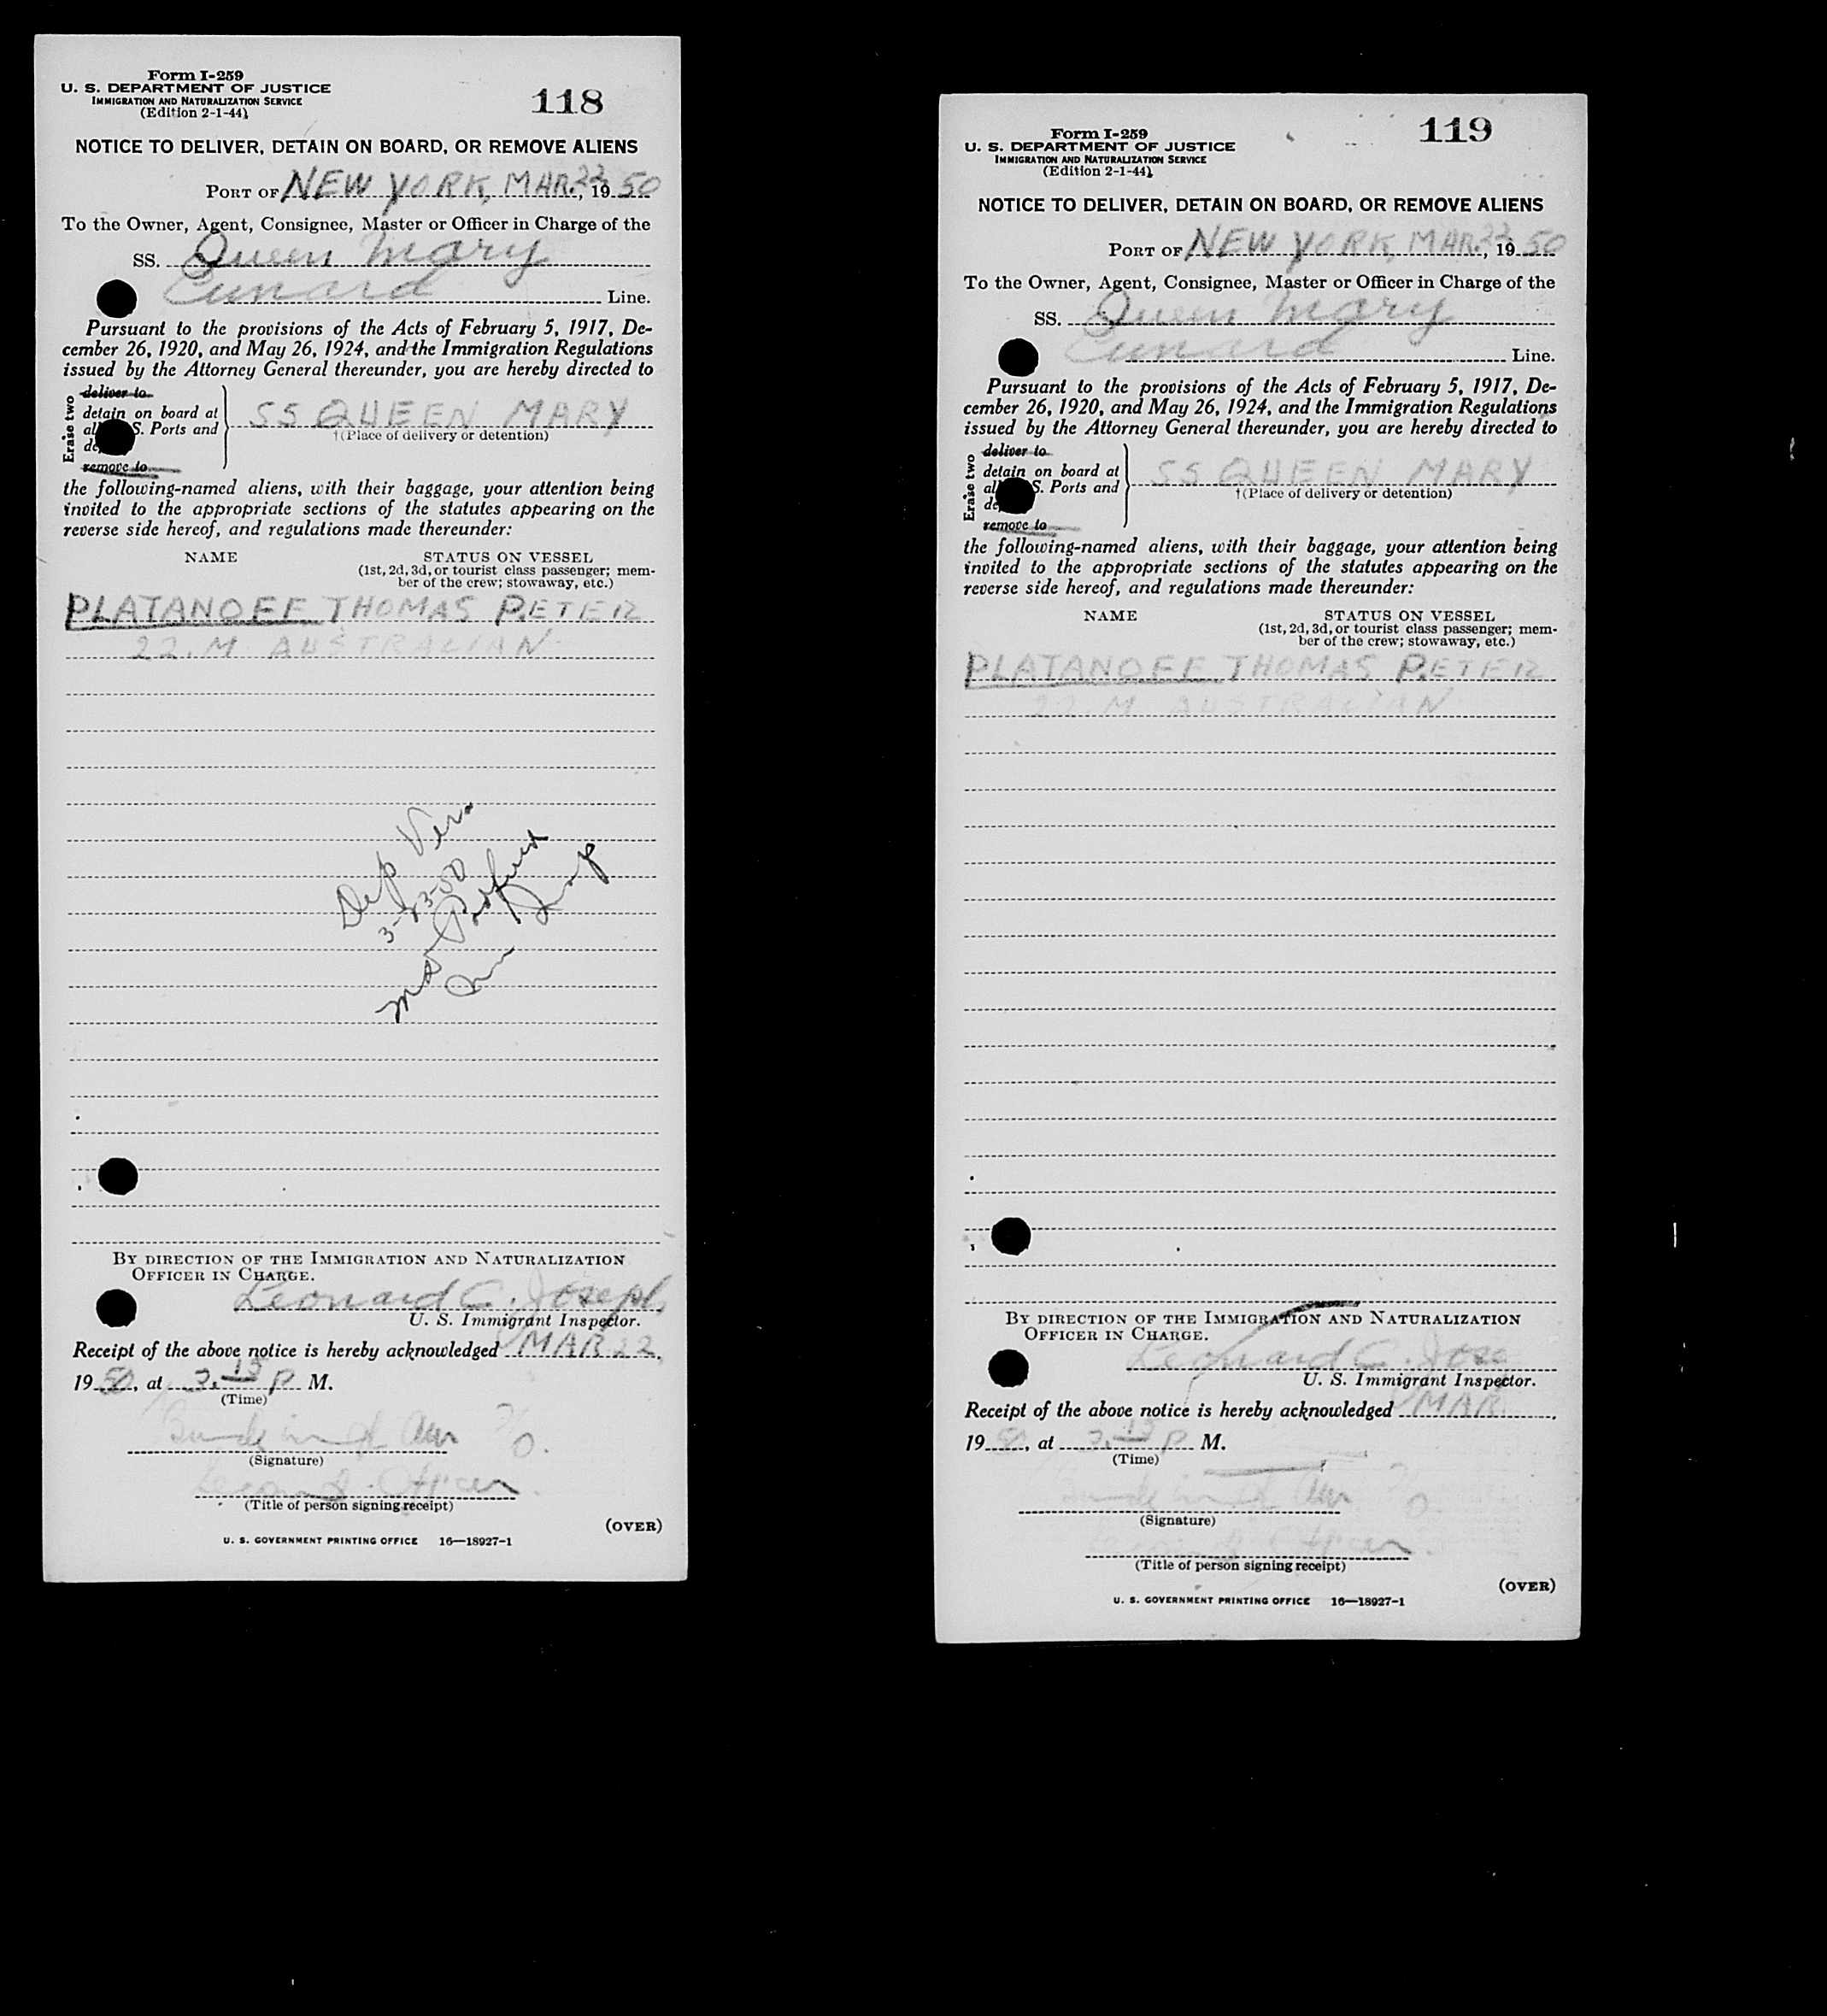 Form I-259
U. S. DEPARTMENT OF JUSTICE
IMMIGRATION AND NATURALIZATION SERVICE
(Edition 2-1-44)
118
NOTICE TO DELIVER, DETAIN ON BOARD, OR REMOVE ALIENS
PORT OF NEW YORK, MAR. 22, 1950
To the Owner, Agent, Consignee, Master or Officer in Charge of the
SS. Queen Mary
Cunard Line.
Pursuant to the provisions of the Acts of February 5, 1917, De-
cember 26, 1920, and May 26, 1924, and the Immigration Regulations
issued by the Attorney General thereunder, you are hereby directed to
Erase two
deliver to
detain on board at
S. Ports and
remove to
SS QUEEN MARY
†(Place of delivery or detention)
the following-named aliens, with their baggage, your attention being
invited to the appropriate sections of the statutes appearing on the
reverse side hereof, and regulations made thereunder:
NAME STATUS ON VESSEL
(1st, 2d, 3d, or tourist class passenger; mem-
ber of the crew; stowaway, etc.)
PLATANOFF THOMAS PETER
22. M AUSTRALIAN
Dep Ver.
3-23-50
BY DIRECTION OF THE IMMIGRATION AND NATURALIZATION
OFFICER IN CHARGE.
Leonard C. Joseph
U. S. Immigrant Inspector.
Receipt of the above notice is hereby acknowledged MAR 22,
1950, at 3.15 P. M.
(Time)
(Signature)
Officer
(Title of person signing receipt)
(OVER)
U. S. GOVERNMENT PRINTING OFFICE 16—18927-1
Form I-259
U. S. DEPARTMENT OF JUSTICE
IMMIGRATION AND NATURALIZATION SERVICE
(Edition 2-1-44)
119
NOTICE TO DELIVER, DETAIN ON BOARD, OR REMOVE ALIENS
PORT OF NEW YORK, MAR. 22, 1950
To the Owner, Agent, Consignee, Master or Officer in Charge of the
SS. Queen Mary
Cunard Line.
Pursuant to the provisions of the Acts of February 5, 1917, De-
cember 26, 1920, and May 26, 1924, and the Immigration Regulations
issued by the Attorney General thereunder, you are hereby directed to
Erase two
deliver to
detain on board at
S. Ports and
remove to
SS QUEEN MARY
†(Place of delivery or detention)
the following-named aliens, with their baggage, your attention being
invited to the appropriate sections of the statutes appearing on the
reverse side hereof, and regulations made thereunder:
NAME STATUS ON VESSEL
(1st, 2d, 3d, or tourist class passenger; mem-
ber of the crew; stowaway, etc.)
PLATANOFF THOMAS PETER
22. M AUSTRALIAN
BY DIRECTION OF THE IMMIGRATION AND NATURALIZATION
OFFICER IN CHARGE.
Leonard C. Jose
U. S. Immigrant Inspector.
Receipt of the above notice is hereby acknowledged MAR
1950, at 3.15 P. M.
(Time)
(Signature)
Officer
(Title of person signing receipt)
(OVER)
U. S. GOVERNMENT PRINTING OFFICE 16—18927-1